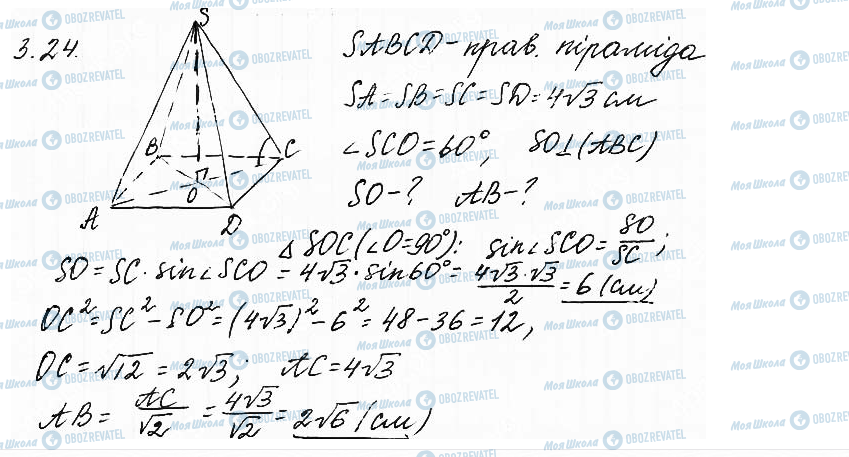 3.24.
S
B
C
A
O
D
SABCD – прав. піраміда
SA = SB = SC = SD = 4√3 см
∠SCO = 60°, SO⊥(ABC)
SO – ? AB – ?
△SOC (∠O = 90°): sin∠SCO = SO/SC;
SO = SC · sin∠SCO = 4√3 · sin60° = 4√3·√3/2 = 6 (см)
OC² = SC² – SO² = (4√3)² – 6² = 48 – 36 = 12,
OC = √12 = 2√3; AC = 4√3
AB = AC/√2 = 4√3/√2 = 2√6 (см)
Моя Школа OBOZREVATEL